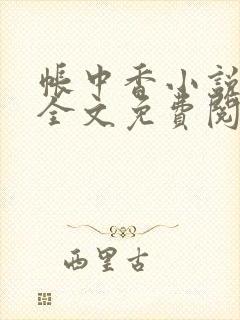 帐中香小说
全文免费阅
西里古